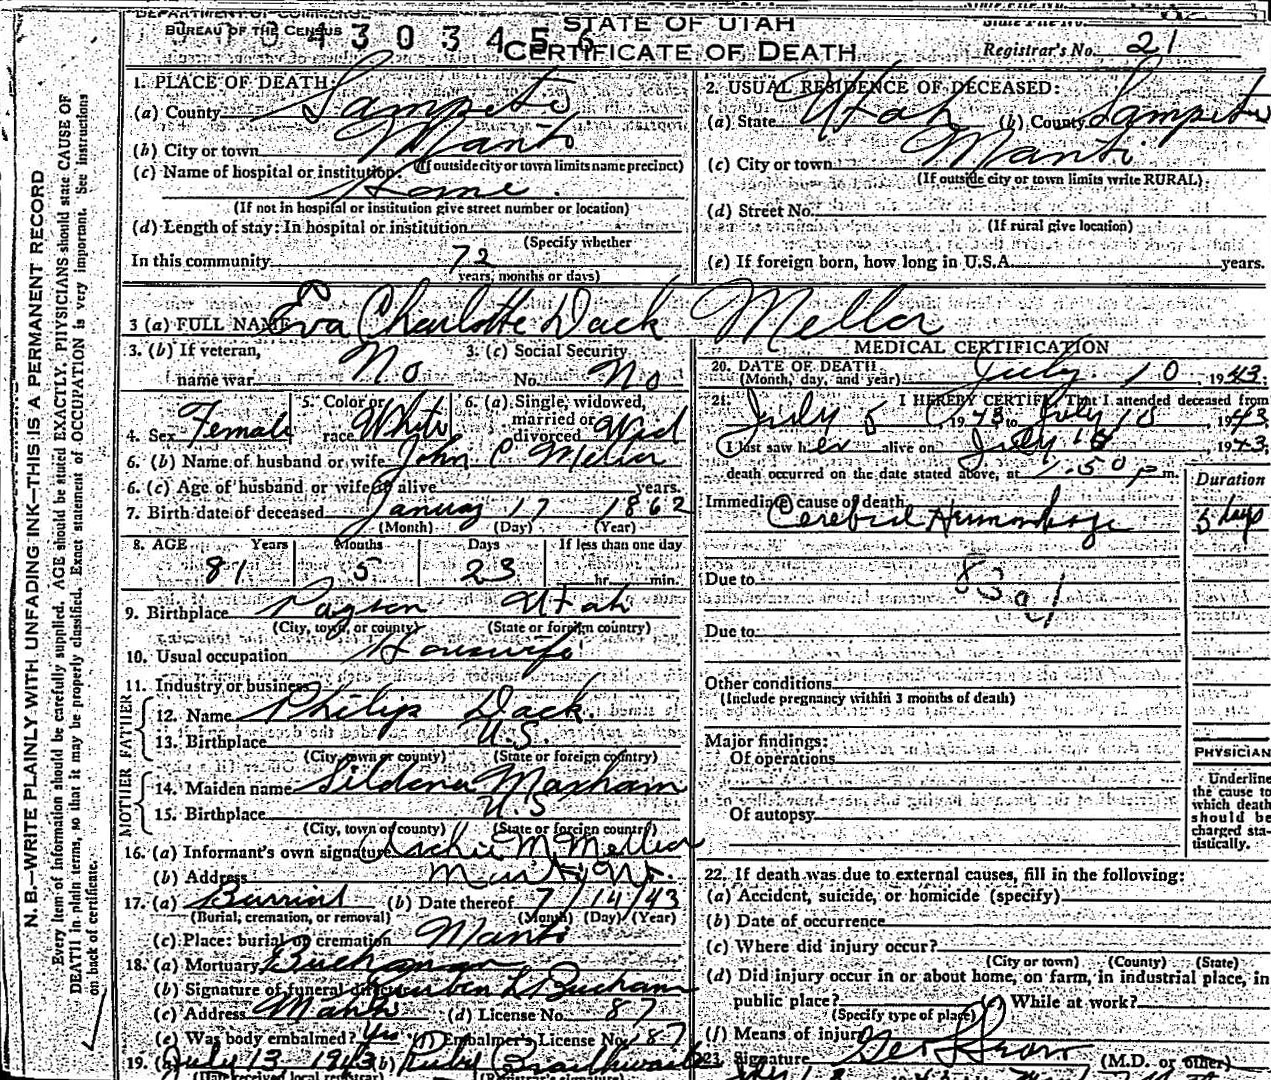 DEPARTMENT OF COMMERCE
BUREAU OF THE CENSUS
4303456
STATE OF UTAH
CERTIFICATE OF DEATH
State File No.
Registrar's No. 21
N. B.—WRITE PLAINLY WITH UNFADING INK—THIS IS A PERMANENT RECORD
Every item of information should be carefully supplied. AGE should be stated EXACTLY. PHYSICIANS should state CAUSE OF
DEATH in plain terms, so that it may be properly classified. Exact statement of OCCUPATION is very important. See instructions
on back of certificate.
1. PLACE OF DEATH:
(a) County Sanpete
(b) City or town Manti
(If outside city or town limits name precinct)
(c) Name of hospital or institution:
Home.
(If not in hospital or institution give street number or location)
(d) Length of stay: In hospital or institution
(Specify whether
In this community 72
years, months or days)
2. USUAL RESIDENCE OF DECEASED:
(a) State Utah (b) County Sanpete
(c) City or town Manti
(If outside city or town limits write RURAL)
(d) Street No.
(If rural give location)
(e) If foreign born, how long in U.S.A. years.
3 (a) FULL NAME Eva Charlotte Dack Mellor
3. (b) If veteran, name war No
3. (c) Social Security No. No
4. Sex Female
5. Color or race White
6. (a) Single, widowed, married or divorced Wid
6. (b) Name of husband or wife John C Mellor
6. (c) Age of husband or wife if alive years.
7. Birth date of deceased January 17 1862
(Month) (Day) (Year)
8. AGE Years Months Days If less than one day
81 5 23 hr. min.
9. Birthplace Payson Utah
(City, town, or county) (State or foreign country)
10. Usual occupation Housewife
11. Industry or business
FATHER
12. Name Philip Dack.
13. Birthplace U.S.
(City, town or county) (State or foreign country)
MOTHER
14. Maiden name Sildena Maxham
15. Birthplace U.S
(City, town or county) (State or foreign country)
16. (a) Informant's own signature Archie M Mellor
(b) Address Manti, Ut.
17. (a) Burrial (b) Date thereof 7/14/43
(Burial, cremation, or removal) (Month) (Day) (Year)
(c) Place: burial or cremation Manti
18. (a) Mortuary Buchanan
(b) Signature of funeral director Reuben L Bucham
(c) Address Manti (d) License No. 87
(e) Was body embalmed? Yes (f) Embalmer's License No. 187
19. (a) July 13 1943 (b) Ruby Braithwaite
(Date received local registrar) (Registrar's signature)
MEDICAL CERTIFICATION
20. DATE OF DEATH July 10, 1943.
(Month, day, and year)
21. I HEREBY CERTIFY, That I attended deceased from
July 5, 1943 to July 10, 1943,
I last saw her alive on July 10, 1943.
death occurred on the date stated above, at 7:50 p m.
Duration
Immediate cause of death
Cerebral Hemorrhage 5 days
Due to
83a1
Due to
Other conditions
(Include pregnancy within 3 months of death)
Major findings:
Of operations
Of autopsy
PHYSICIAN
Underline
the cause to
which death
should be
charged sta-
tistically.
22. If death was due to external causes, fill in the following:
(a) Accident, suicide, or homicide (specify)
(b) Date of occurrence
(c) Where did injury occur?
(City or town) (County) (State)
(d) Did injury occur in or about home, on farm, in industrial place, in
public place? (e) While at work?
(Specify type of place)
(f) Means of injury
23. Signature (M.D. or other)